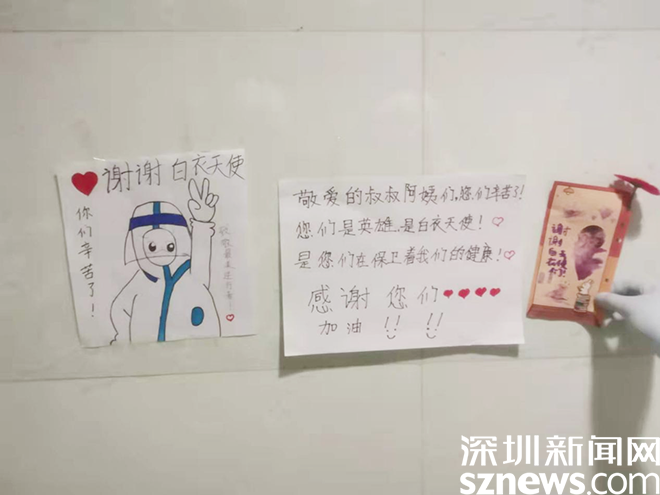 谢谢 白衣天使
你们辛苦了!
敬爱的叔叔阿姨们,您们辛苦了!
您们是英雄,是白衣天使!
是您们在保卫着我们的健康!
感谢 您们
加油 !! !!
谢
谢
深圳新闻网
sznews.com